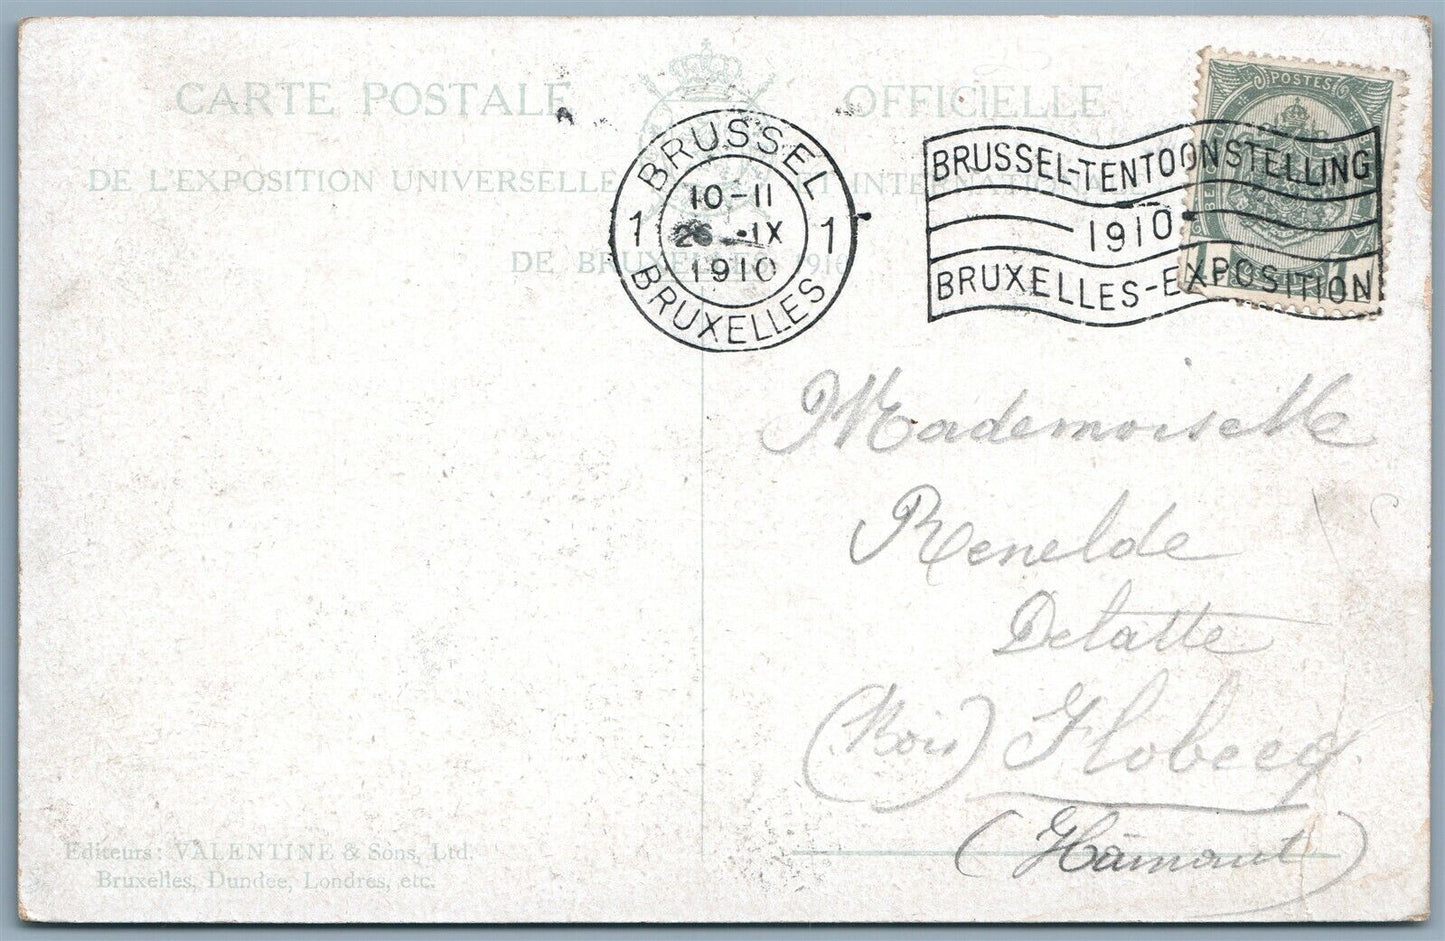 CARTE POSTALE OFFICIELLE
DE L'EXPOSITION UNIVERSELLE ET INTERNATIONALE
DE BRUXELLES 1910
BRUSSEL
10-11
26 IX
1910
1 1
BRUXELLES
BRUSSEL-TENTOONSTELLING
1910
BRUXELLES-EXPOSITION
POSTES
Mademoiselle
Renelde
Delatte
(Bois) Flobecq
(Hainaut)
Editeurs: VALENTINE & Sons, Ltd.
Bruxelles, Dundee, Londres, etc.